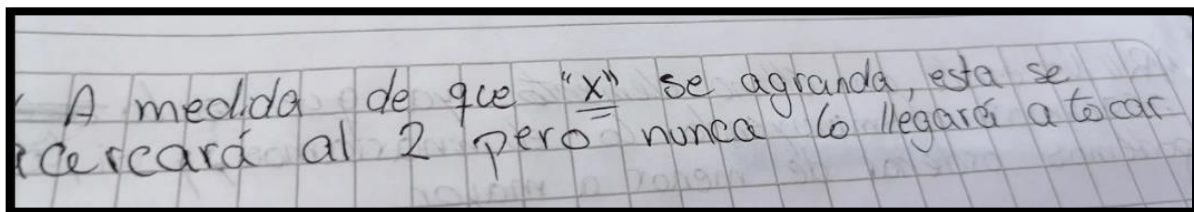 A medida de que "x" se agranda, esta se
acercará al 2 pero nunca lo llegará a tocar